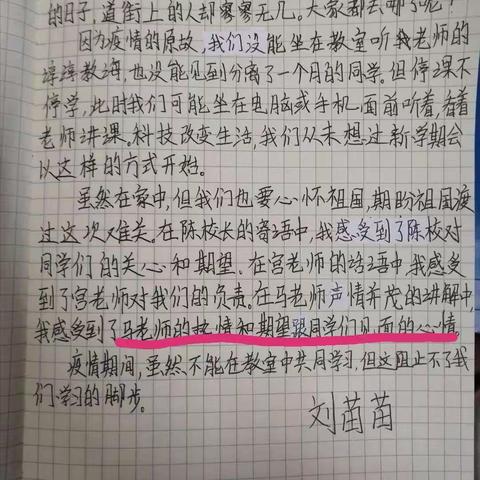 的日子,道街上的人却寥寥无几。大家都去哪了呢?
因为疫情的原故,我们没能坐在教室听我老师的
谆谆教诲,也没能见到分离了一个月的同学。但停课不
停学,此时我们可能坐在电脑或手机面前听着,看着
老师讲课。科技改变生活,我们从未想过新学期会
以这样的方式开始。
虽然在家中,但我们也要心怀祖国,期盼祖国渡
过这次难关。在陈校长的寄语中,我感受到了陈校对
同学们的关心和期望。在宫老师的话语中,我感受
到了宫老师对我们的负责。在马老师声情并茂的讲解中,
我感受到了马老师的热情和期望跟同学们见面的心情
疫情期间,虽然不能在教室中共同学习,但这阻止不了我
们学习的脚步。
刘苗苗